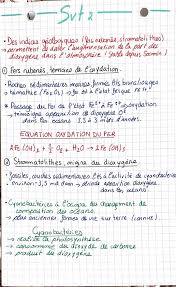 SVT 2
• Des indices géologiques (fers rubanés, stromatolithes)
→ permettent de dater l'augmentation de la part des
dioxygène dans l'atmosphère
① Fers rubanés, témoins de l'oxydation
• Roches sédimentaires marines, formés
• hématites (Fe₂O₃) → fer et à l'état ferique Fe³⁺
• Passage du Fer de l'état Fe²⁺ à Fe³⁺ → oxydation
→ témoigne apparition de dioxygène O²
dans les océans 3,5 à milliards d'années
EQUATION OXYDATION DU FER
2 Fe(OH)₂ + ½ O₂ + H₂O → 2 Fe(OH)₃
② Stromatholithes, origine du dioxygène
• fossiles, couches sédimentaires liés à l'activité de cyanobactéries
• environ 3,5 mrd d'ans → période apparition dioxygène
dans les océans
• Cyanobactéries à l'origine du changement de
composition des océans.
→ plus anciennes formes de vie sur terre (connue).
Cyanobactéries
→ réalise la photosynthèse
→ consomme du dioxyde de carbone
→ produit du dioxygène